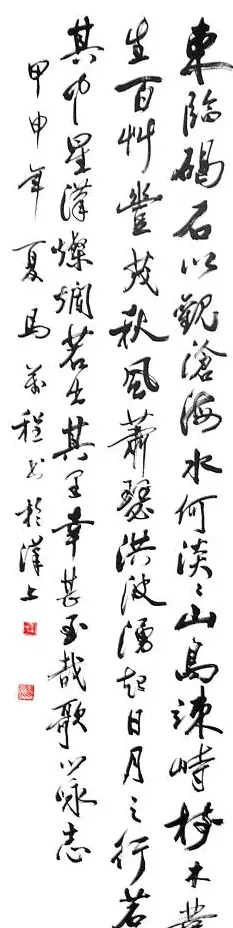 東臨碣石以觀滄海水何淡〻山島竦峙樹木叢
生百艸豐茂秋風蕭瑟洪波湧起日月之行若
其中星漢燦爛若出其里幸甚至哉歌以咏志
甲申年夏馬萬程书於漢上